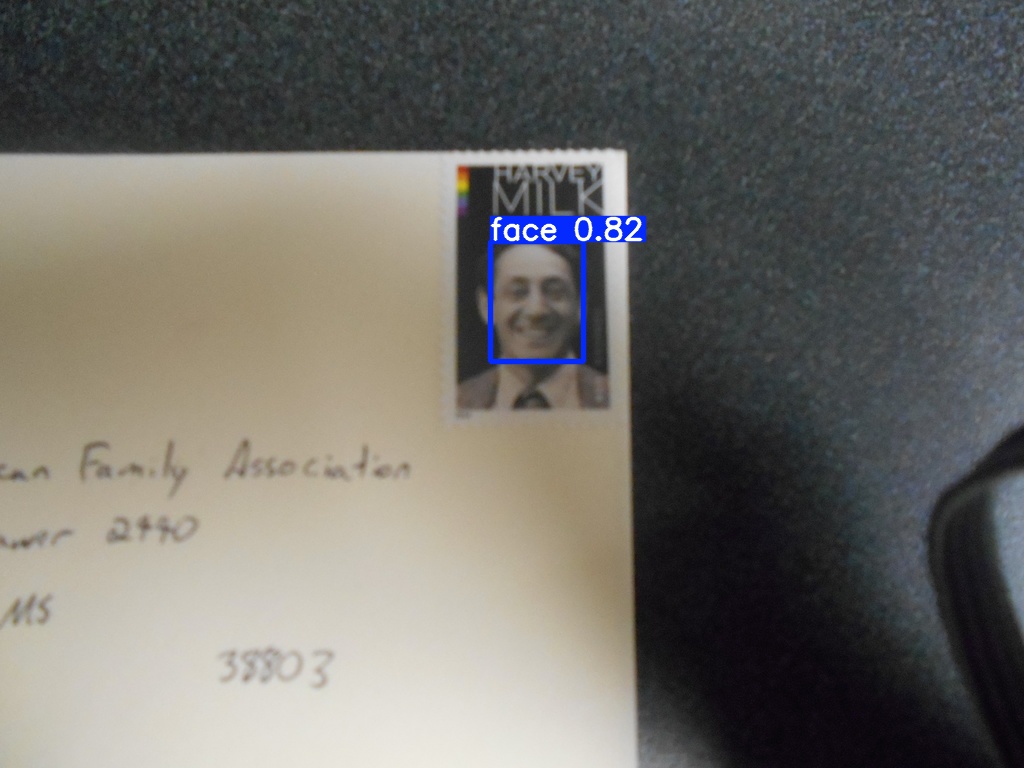 HARVEY
MILK
face 0.82
Family Association
2440
MS
38803